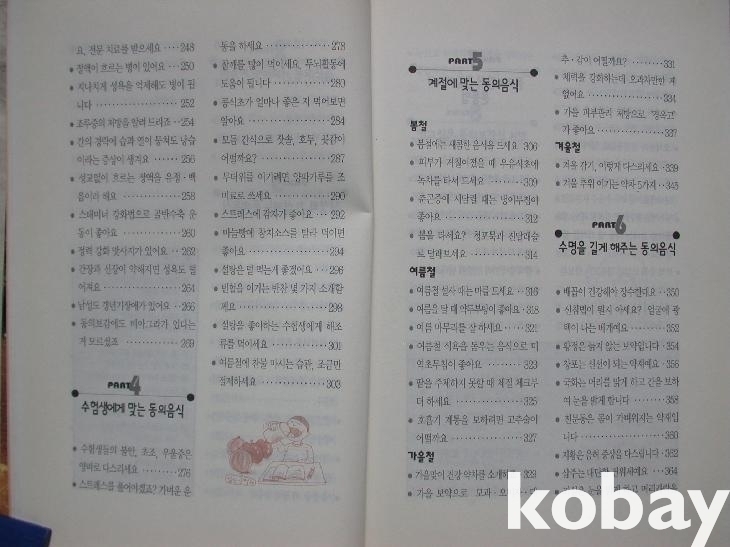 요, 전문 치료를 받으세요 ····248
정액이 흐르는 병이 있어요 ···250
지나치게 성욕을 억제해도 병이 됩
니다 ················252
조루증의 처방을 알려 드리죠 ··254
간의 경락에 습과 열이 뭉쳐도 낭습
이라는 증상이 생겨요 ······256
성교없이 흐르는 정액을 유정·백
음이라 해요 ············258
스태미너 강화법으로 골반수축 운
동이 좋아요 ············260
정력 강화 맛사지가 있어요 ···262
간장과 신장이 약해지면 성욕도 떨
어져요 ···············264
남성도 갱년기장애가 있어요 ··266
동의보감에도 비아그라가 있다는
거 모르셨죠 ············269
PART 4
수험생에게 맞는 동의음식
수험생들의 불안, 초조, 우울증은
양파로 다스리세요 ········276
스트레스를 풀어야겠죠? 가벼운 운
동을 하세요 ············278
참깨를 많이 먹이세요. 두뇌활동에
도움이 됩니다 ··········280
콩식초가 얼마나 좋은 지 먹어보면
알아요 ···············284
모듬 간식으로 잣솔, 호두, 곶감이
어떨까요? ·············287
무더위를 이기려면 양파가루를 조
미료로 쓰세요 ··········290
스트레스에 감자가 좋아요 ···292
마늘빵에 참치소스를 발라 먹이면
좋아요 ···············294
설탕은 덜 먹는게 좋겠어요 ··296
빈혈을 이기는 반찬 몇 가지 소개할
께요 ················298
설탕을 좋아하는 수험생에게 해조
류를 먹이세요 ··········301
여름철에 찬물 마시는 습관, 조금만
절제하세요 ············303
PART 5
계절에 맞는 동의음식
봄철
봄철에는 새콤한 음식을 드세요 306
피부가 거칠어졌을 때 우유식초에
녹차를 타서 드세요 ·······309
춘곤증에 시달릴 때는 냉이무침이
좋아요 ···············312
봄을 타세요? 청포묵과 진달래술
로 달래보세요 ··········314
여름철
여름철 설사 때는 마를 드세요 ··316
여름을 탈 때 아욱부탕이 좋아요 ·318
여름 마무리를 잘 하세요 ····321
여름철 식욕을 돋우는 음식으로 미
역초무침이 좋아요 ·······323
땀을 주체하지 못할 때 체질 체크부
터 하세요 ·············325
호흡기 계통을 보하려면 고추술이
어떨까요 ·············327
가을철
가을맞이 건강 약차를 소개해 329
가을 보약으로 모과·오
추·감이 어떨까요? ·······331
체력을 강화하는데 오과차만한 게
없어요 ···············334
가을 피부관리 처방으로 '경옥고'
가 좋아요 ·············337
겨울철
겨울 감기, 이렇게 다스리세요 ··339
겨울 추위 이기는 약차 5가지 ··345
PART 6
수명을 길게 해주는 동의음식
배꼽이 건강해야 장수한대요 ··350
신침법이 뭔지 아세요? 얼굴에 광
택이 나는 비계예요 ·······352
황정은 늙지 않는 보약입니다 ·354
창포는 신선이 되는 약재예요 ·356
국화는 머리를 맑게 하고 간을 보하
여 눈을 밝게 합니다 ······358
천문동은 몸이 가벼워지는 약재입
니다 ················360
지황은 음허 증상을 다스립니다 ·362
삽주는 ···364
kobay